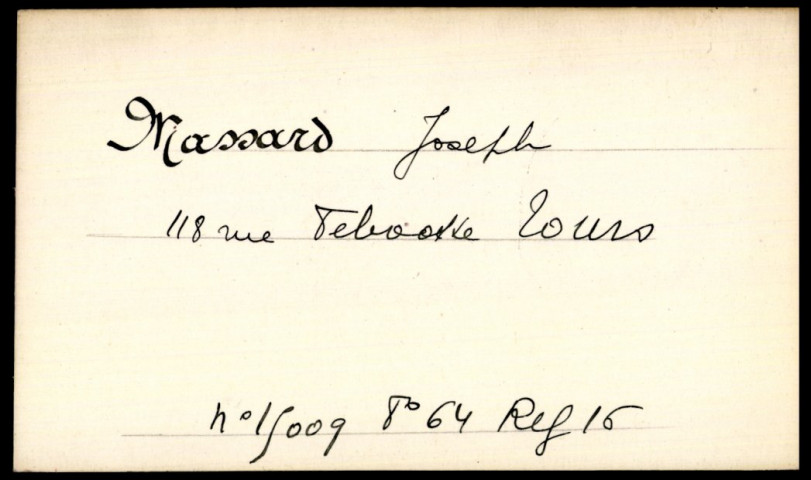 Massard Joseph
118 rue Febvotte Tours
n° 15009 F° 64 Reg 16